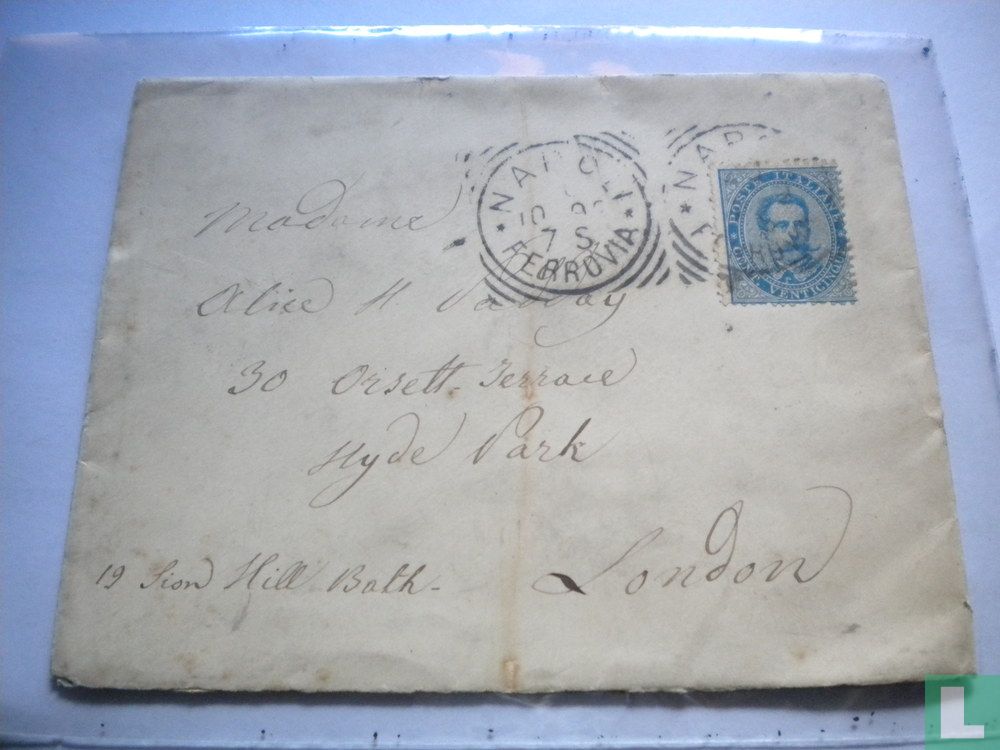 NAPOLI
10
7 S
* FERROVIA *
NAP
* POSTE ITALIANE *
CENT. VENTICINQUE
Madame
Alice H.
30 Orsett Terrace
Hyde Park
London
19 Sion Hill Bath -
L